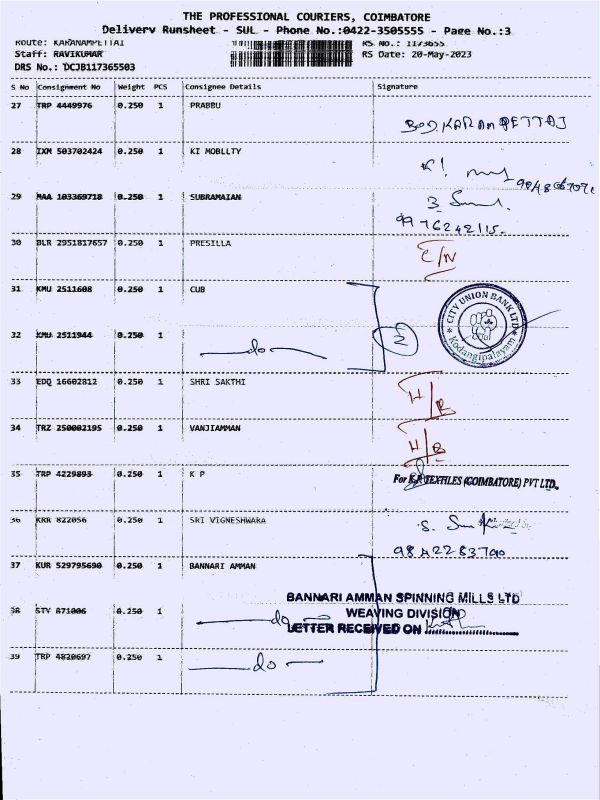 THE PROFESSIONAL COURIERS, COIMBATORE
Delivery Runsheet - SUL - Phone No.:0422-3505555 - Page No.:3
Route: KARANAMPETTAI RS No.: 1173655
Staff: RAVIKUMAR RS Date: 20-May-2023
DRS No.: DCJB117365503
S No Consignment No Weight PCS Consignee Details Signature
27 TRP 4449976 0.250 1 PRABBU
BOD.KARAMPETTAI
28 IXM 503702424 0.250 1 KI MOBLLTY
K!
29 MAA 103369718 0.250 1 SUBRAMAIAN
9976242115.
30 BLR 2951817657 0.250 1 PRESILLA
C/N
31 KMU 2511608 0.250 1 CUB
CITY UNION BANK LTD
Kodangipalayam
32 KMU 2511944 0.250 1 do 2
33 EDQ 16602812 0.250 1 SHRI SAKTHI
H/R
34 TRZ 250002195 0.250 1 VANJIAMMAN
H/R
35 TRP 4229893 0.250 1 K P
For K.P. TEXTILES (COIMBATORE) PVT LTD.,
36 KRR 822056 0.250 1 SRI VIGNESHWARA
S.
37 KUR 529795690 0.250 1 BANNARI AMMAN
BANNARI AMMAN SPINNING MILLS LTD
WEAVING DIVISION
38 STV 871006 0.250 1 do
LETTER RECEIVED ON
39 TRP 4820697 0.250 1 do